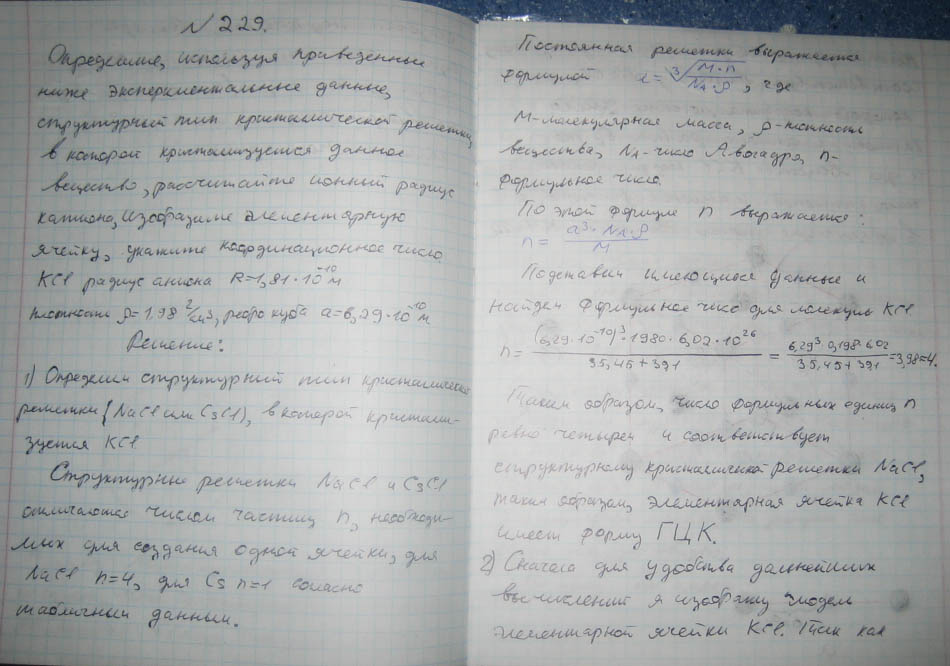 № 229.
Определите, используя приведенные
ниже экспериментальные данные,
структурный тип кристаллической решетки,
в которой кристаллизуется данное
вещество, рассчитайте ионный радиус
катиона, изобразите элементарную
ячейку, укажите координационное число
KCl радиус аниона R=1,81·10⁻¹⁰ м
плотность ρ=1,98 г/см³, ребро куба a=6,29·10⁻¹⁰ м
Решение:
1) Определим структурный тип кристаллической
решетки (NaCl или CsCl), в которой кристалли-
зуется KCl
Структурные решетки NaCl и CsCl
отличаются числом частиц n, необходи-
мых для создания одной ячейки, для
NaCl n=4, для Cs n=1 согласно
табличным данным.
Постоянная решетки выражается
формулой a = ∛(M·n / N_A·ρ), где
M-молекулярная масса, ρ-плотность
вещества, N_A-число Авогадро, n-
формульное число.
По этой формуле n выражается:
n = a³·N_A·ρ / M
Подставим имеющиеся данные и
найдем формульное число для молекулы KCl
n = (6,29·10⁻¹⁰)³·1980·6,02·10²⁶ / 35,45+39,1 = 6,29³·0,198·6,02 / 35,45+39,1 = 3,98≈4.
Таким образом, число формульных единиц n
равно четырем и соответствует
структурному кристаллической решетки NaCl,
таким образом, элементарная ячейка KCl
имеет форму ГЦК.
2) Сначала для удобства дальнейших
вычислений я изображу модель
элементарной ячейки KCl. Так как